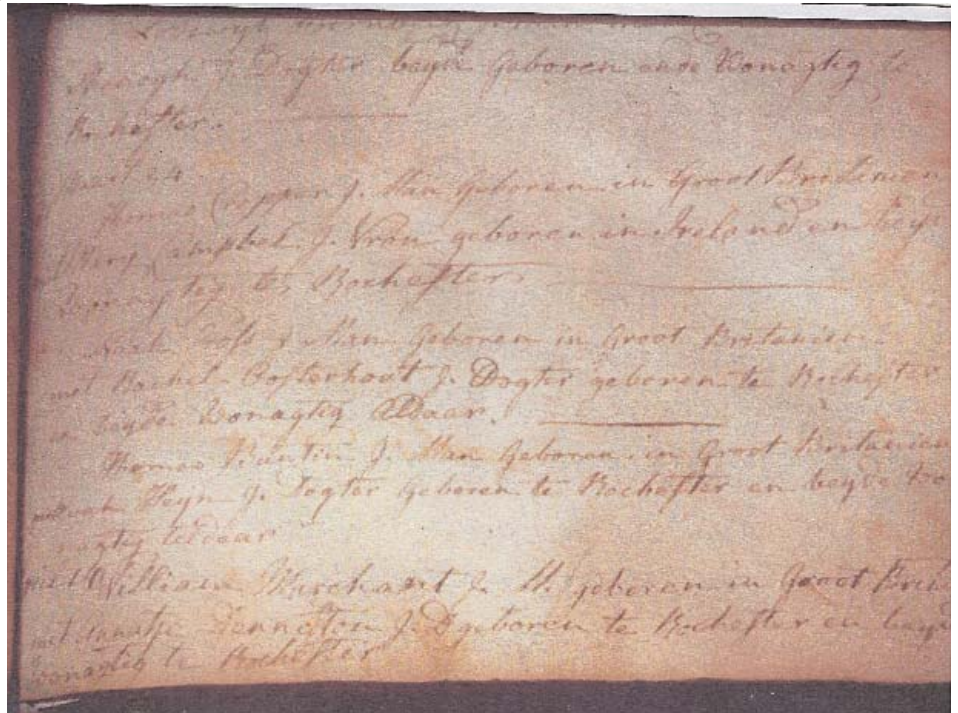 J. Dogter beyde Geboren ende Wonagtig te
Rochester.
Thomas J. Man Geboren in Groot Britanien
Mary Campbel J. Vrou geboren in Ireland en beyd
Wonagtig te Rochester
J. Man Geboren in Groot Britanien
met Rachel Oosterhout J. Dogter geboren te Rochester
en beyde Wonagtig Aldaar.
Thomas Buntin J. Man Geboren in Groot Britanien
Heyn J. Dogter Geboren te Rochester en beyde wo
nagtig aldaar
William Merchant J. M. geboren in Groot Brit
met Jannetje Dennston J. D geboren te Rochester en beyd
wonagtig te Rochester